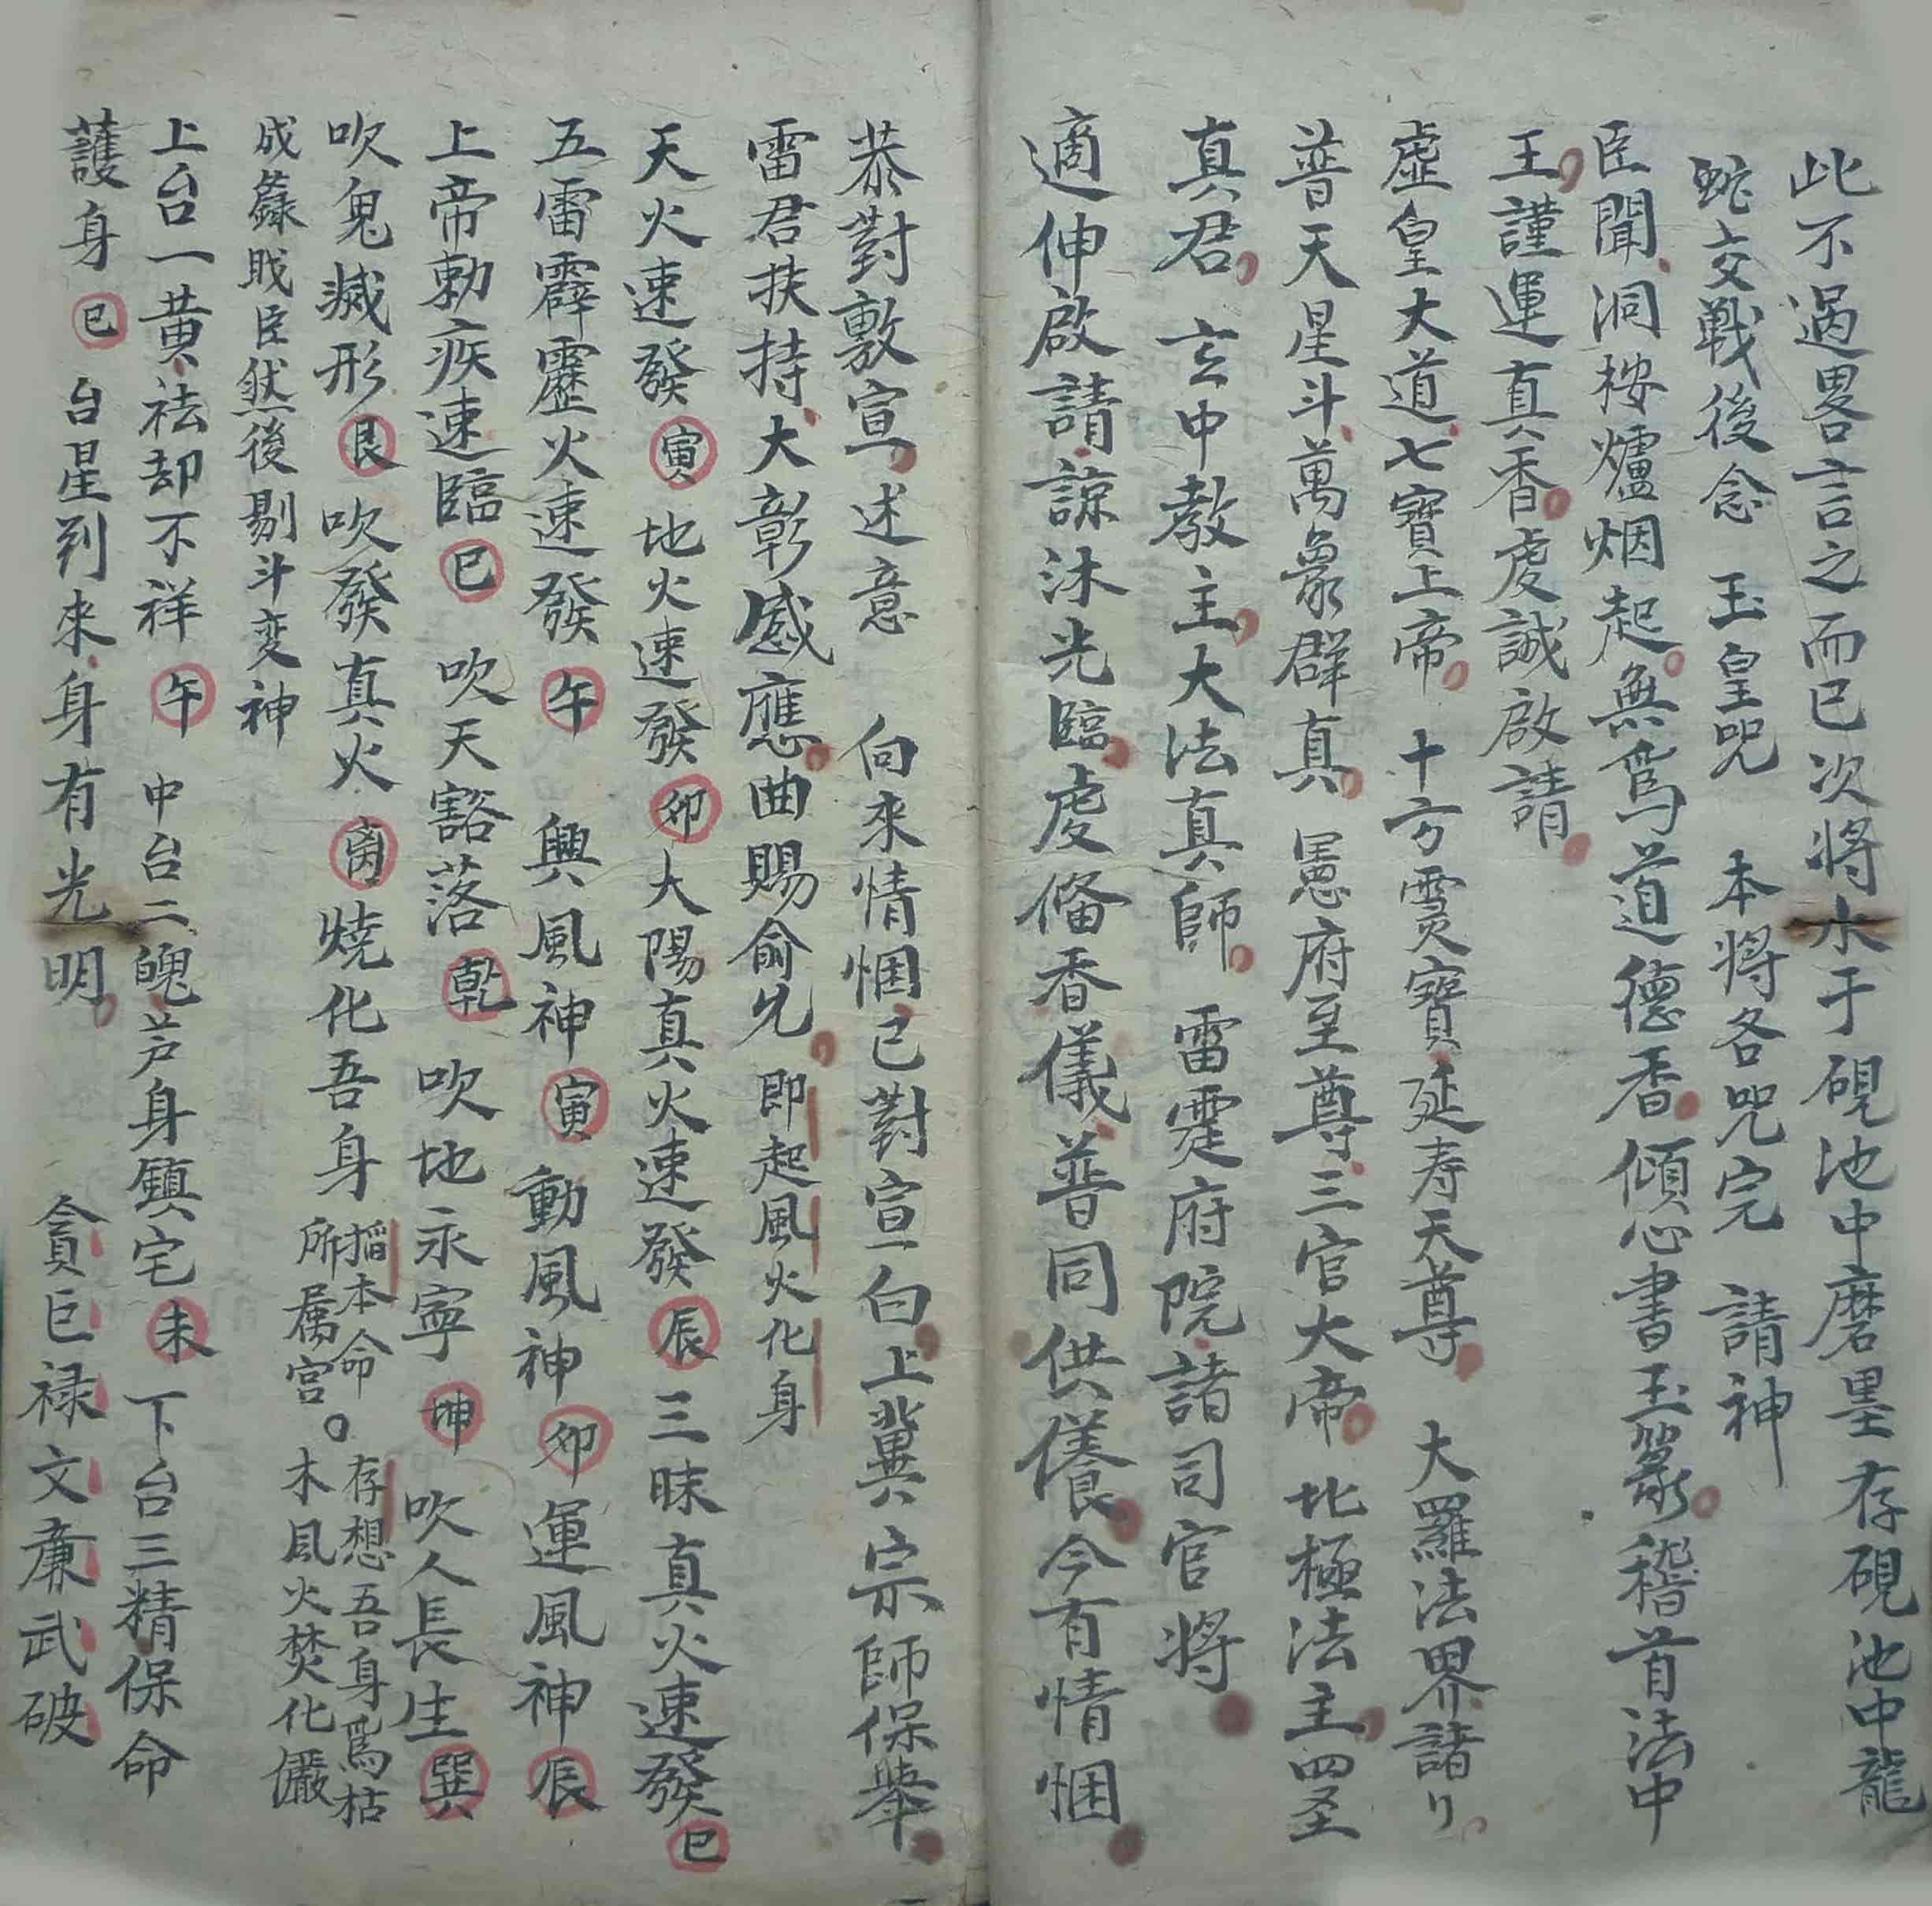 此不過畧言之而已次將水于硯池中磨墨存硯池中龍
蛇交戰後念 玉皇咒 本將各咒完 請神
臣聞洞桉爐烟起無為道德香傾心書玉篆稽首法中
王謹運真香虔誠啟請
虛皇大道七寶上帝 十方霛寶延寿天尊 大羅法界諸〻
普天星斗萬象群真 憲府至尊三官大帝 北極法主四圣
真君 玄中教主大法真師 雷霆府院諸司官將
適伸啟請諒沐光臨虔俻香儀普同供儀今有情悃
恭對敷宣 述意 向來情悃已對宣白上冀宗師保舉
雷君扶持大彰感應曲賜俞允 即起風火化身
天火速發 寅 地火速發 卯 大陽真火速發 辰 三昧真火速發 巳
五雷霹靂火速發 午 興風神 寅 動風神 卯 運風神 辰
上帝勅疾速臨 巳 吹天豁落 乾 吹地永寧 坤 吹人長生 巽
吹鬼滅形 艮 吹發真火 离 燒化吾身 搯本命所屬宮。存想吾身為枯木風火焚化儼
成籙戝臣然後剔斗変神
上台一黄祛却不祥 午 中台二魄芦身鎮宅 未 下台三精保命
護身 巳 台星到來身有光明 貪巨禄文亷武破